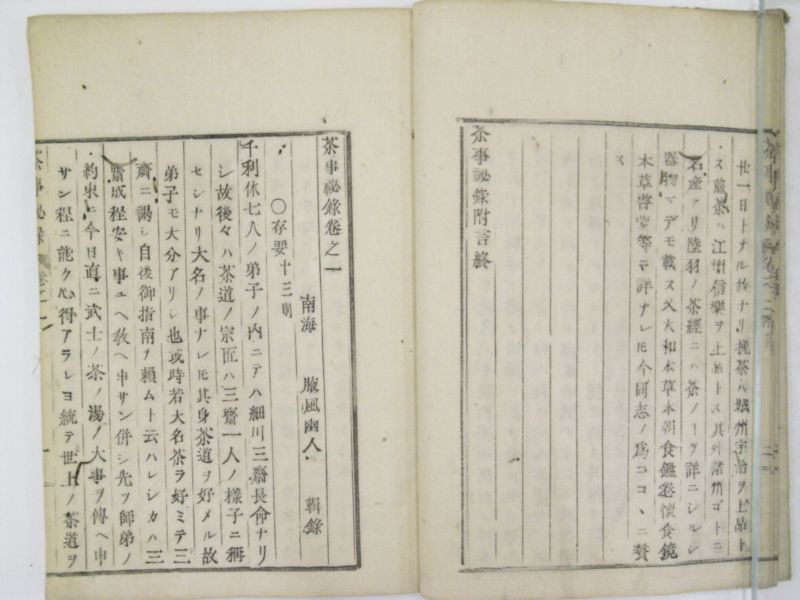 廿一日トナル故ナリ挽茶ハ城州宇治ヲ上品ト
ス煎茶ハ江州信樂ヲ上品トス其外諸州ゴトニ
名産アリ陸羽ノ茶經ニハ茶ノ一ヲ詳ニシルシ
器物マデモ載ス又大和本草本朝食鑑巻懐食鏡
本草啓蒙等ニ詳ナレ𪜈今同志ノ爲ココニ贅
ス
茶事祕錄附言終
茶事祕錄卷之一
南海 幽人 輯錄
〇存要十三則
千利休七人ノ弟子ノ内ニテハ細川三齋長命ナリ
シ故後々ハ茶道ノ宗匠ハ三齋一人ノ樣子ニ稱
セシナリ大名ノ事ナレ𪜈其身茶道ヲ好メル故
弟子モ大分アリシ也或時若大名茶ヲ好ミテ三
齋ニ謁シ自後御指南ヲ賴ムト云ハレシカハ三
齋成程安キ事ユヘ敎ヘ申サン併シ先ツ師弟ノ
約束ニ今日直ニ武士ノ茶ノ湯ノ大事ヲ傳ヘ申
サン程ニ能ク心得アラレヨ統テ世上ノ茶道ヲ
茶事祕錄